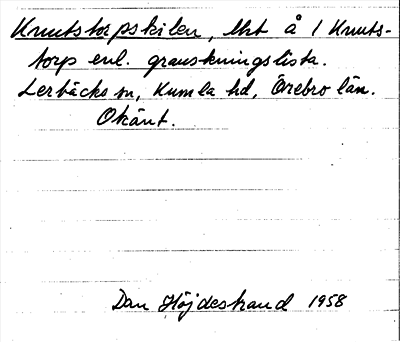 Knutstorpskilen, tilht å 1 Knuts-
torp enl. granskningslista.
Lerbäcks sn, Kumla hd, Örebro län.
Okänt.
Dan Höjdestrand 1958